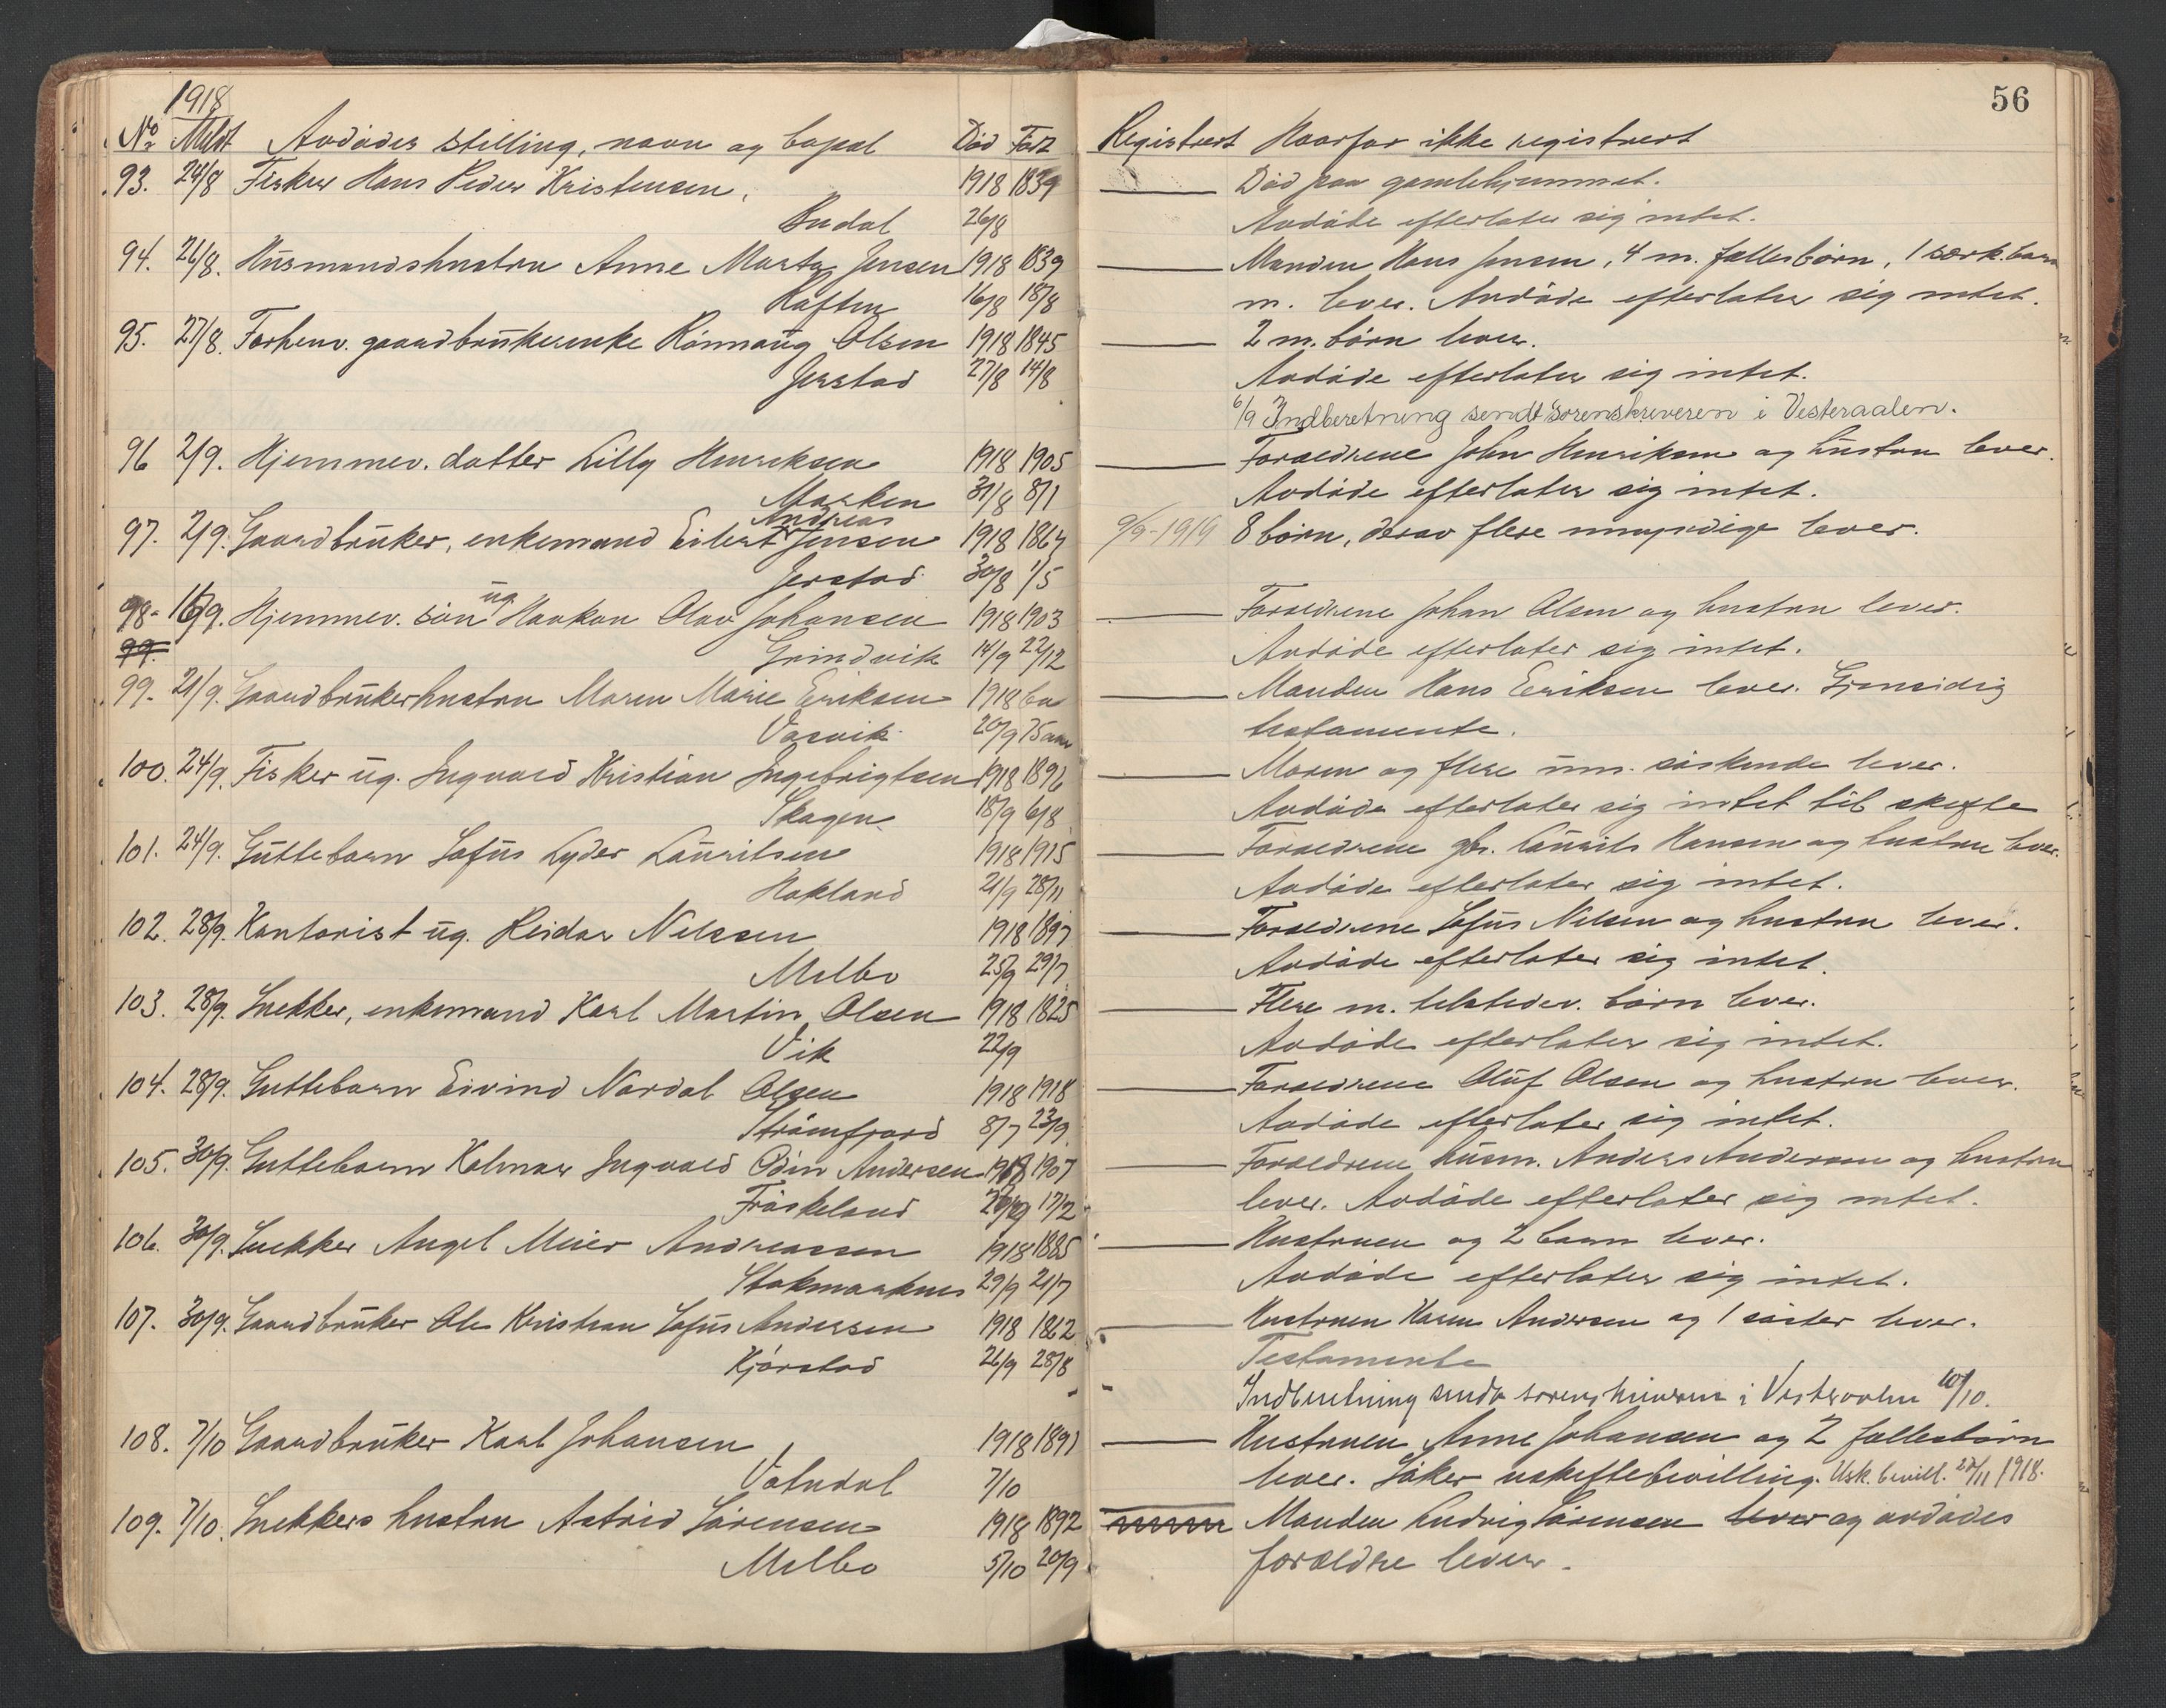 1918
56
No Meldt Avdødes stilling, navn og bopæl Død Født Registrert Hvorfor ikke registrert
93. 24/8 Fisker Hans Peder Kristensen, 1918 1839 Død paa gamlehjemmet.
Budal 26/8 Avdøde efterlater sig intet.
94. 26/8. Husmandshustru Anne Marta Jensen 1918 1839 Manden Hans Jensen, 4 m. fællesbørn, 1 særk. barn
Haften 16/8 18/8 m. lever. Avdøde efterlater sig intet.
95. 27/8. Forhenv. gaardbrukerenke Rønnaug Olsen 1918 1845 2 m. børn lever.
Jerstad 27/8 14/8 Avdøde efterlater sig intet.
6/9 Indberetning sendt sorenskriveren i Vesteraalen.
96 2/9. Hjemmev. datter Lilly Henriksen 1918 1905 Forældrene John Henriksen og hustru lever.
Marken 31/8 8/1 Avdøde efterlater sig intet.
97. 2/9. Gaardbruker, enkemand Eilert Andreas Jensen 1918 1864 9/9-1919 8 børn, derav flere umyndige lever.
Jerstad 30/8 1/5
98- 16/9. Hjemmev. søn ug. Haakon Olav Johansen 1918 1903 Forældrene Johan Olsen og hustru lever.
99. Grindvik 14/9 22/12 Avdøde efterlater sig intet.
99. 21/9. Gaardbrukerhustru Maren Marie Eriksen 1918 Manden Hans Eriksen lever. Gjensidig
Vasvik 20/9 75 aar testamente.
100. 24/9. Fisker ug. Ingvald Kristian Ingebrigtsen 1918 1896 Moren og flere um. søskende lever.
Skagen 18/9 6/8 Avdøde efterlater sig intet til skifte
101. 24/9. Guttebarn Lofus Lyder Lauritsen 1918 1915 Forældrene gbr. Laurits Hansen og hustru lever.
Hokland 21/9 28/11 Avdøde efterlater sig intet.
102. 28/9. Kontorist ug. Reidar Nelssen 1918 1897 Forældrene Lofus Nilsen og hustru lever.
Melbo 25/9 29/7 Avdøde efterlater sig intet.
103. 28/9. Snekker, enkemand Karl Martin Olsen 1918 1825 Flere m. tilstedev. børn lever.
Vik 22/9 Avdøde efterlater sig intet.
104. 28/9. Guttebarn Eivind Nordal Olsen 1918 1918 Forældrene Oluf Olsen og hustru lever.
Strømfjord 8/7 23/9. Avdøde efterlater sig intet.
105. 30/9. Guttebarn Kolmar Ingvald Odin Andersen 1918 1907 Forældrene husm. Anders Andersen og hustru
Frøskeland 17/2 lever. Avdøde efterlater sig intet.
106. 30/9. Snekker Angel Meier Andreassen 1918 1885 Hustruen og 2 barn lever.
Stokmarknes 29/9 21/7 Avdøde efterlater sig intet.
107. 30/9. Gaardbruker Ole Kristian Lofus Andersen 1918 1862 Hustruen Karen Andersen og 1 søster lever.
Kjørstad 26/9 28/8 Testamente
Indberetning sendt sorenskriveren i Vesteraalen 10/10.
108. 7/10 Gaardbruker Karl Johansen, 1918 1891 Hustruen Anne Johansen og 2 fællesbørn
Vatndal 7/10 lever. Søker uskiftebevilling. Usk. bevill. 27/11 1918.
109. 7/10. Snekkers hustru Astrid Sørensen 1918 1892 Manden Ludvig Sørensen lever og avdødes
Melbo 5/10 20/9 forældre lever.